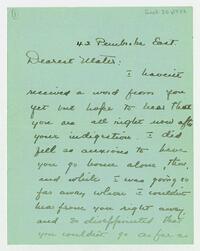 1
Sept 30 1922
42 Pembroke East.
Dearest Mater:
I haven't
received a word from you
yet but hope to hear that
you are all right now after
your indigestion. I did
feel so anxious to have
you go home alone, then,
and while I was going so
far away where I couldn't
hear from you right away.
and so disappointed that
you couldn't go as far as